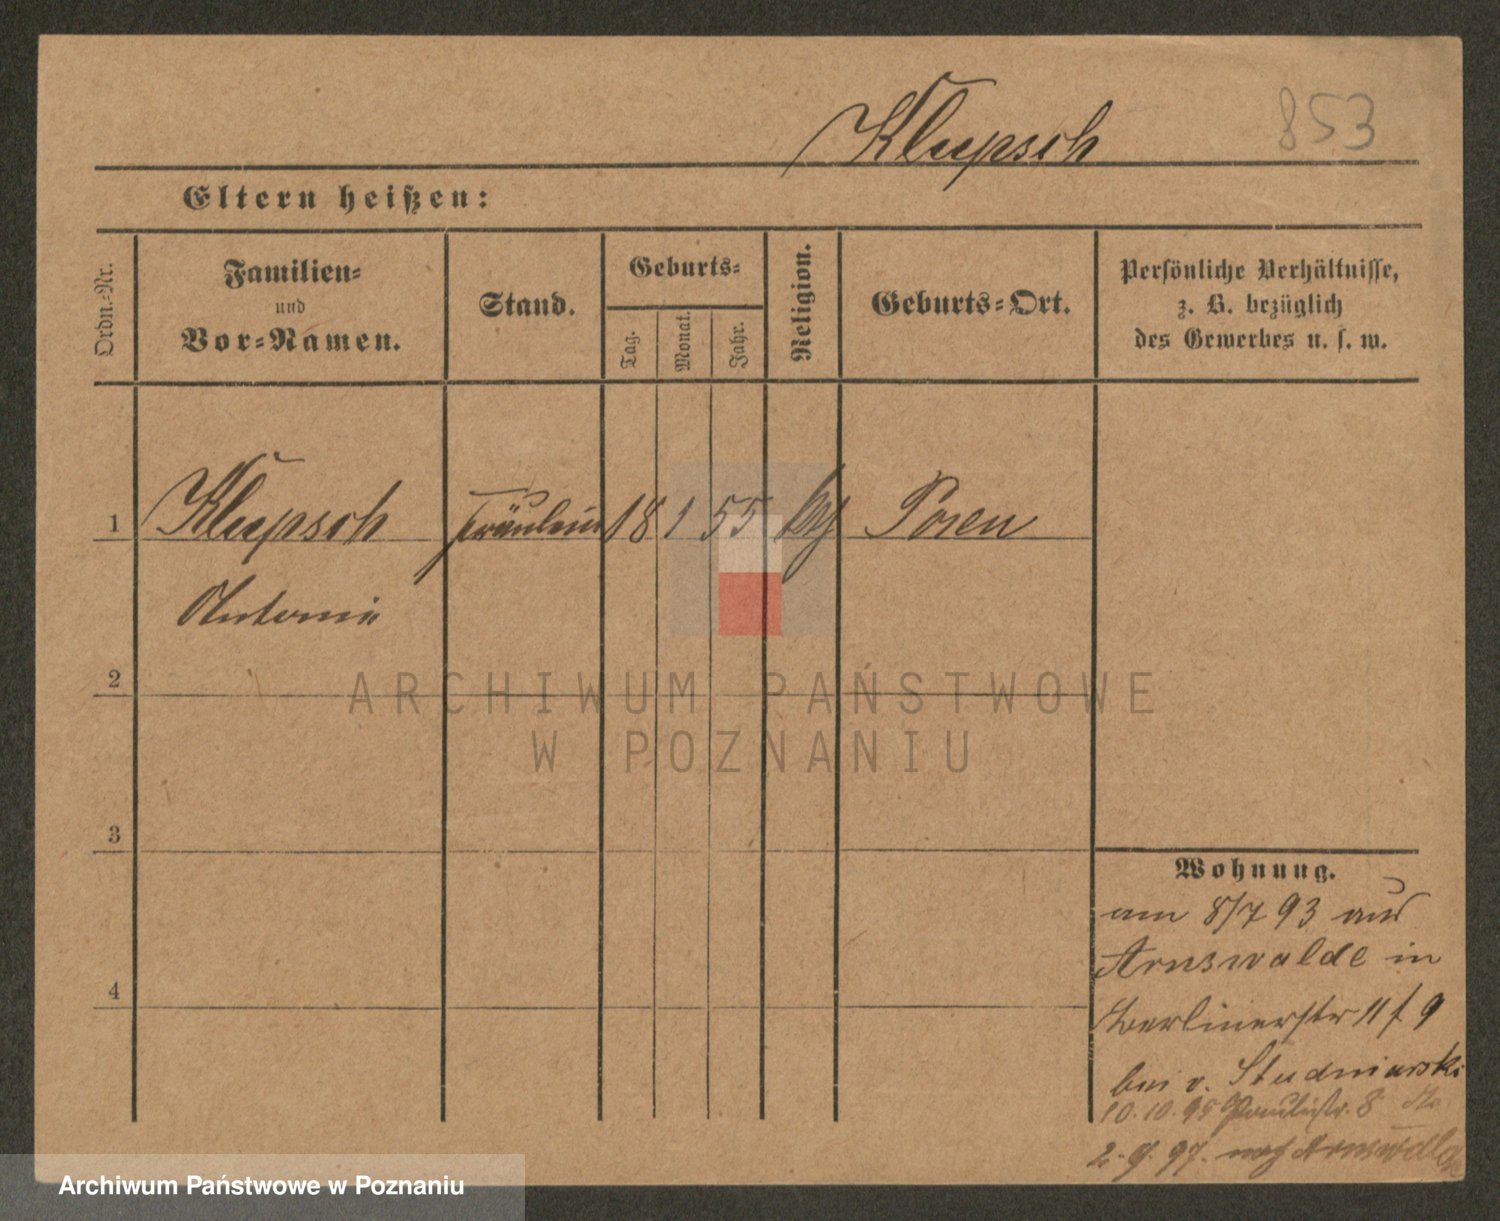 Klupsch 853
Eltern heißen:
Ordn.-Nr.
Familien-
und
Vor-Namen.
Stand.
Geburts-
Tag.
Monat.
Jahr.
Religion.
Geburts-Ort.
Persönliche Verhältnisse,
z. B. bezüglich
des Gewerbes u. s. w.
1 Klupsch Fräulein 18 1 55 kth Posen
Antonie
2
3
4
Wohnung.
am 8/7 93 aus
Arnswalde in
Berlinerstr 11 f 9
bei v. Studniarski
10.10.95 Paulistr. 8
2. 9. 97. nach Arnswalde
ARCHIWUM PAŃSTWOWE
W POZNANIU
Archiwum Państwowe w Poznaniu